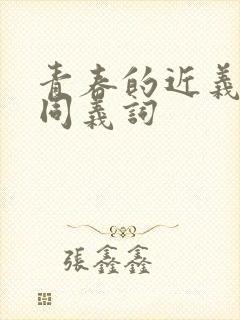 青春的近義
同義詞
張鑫鑫